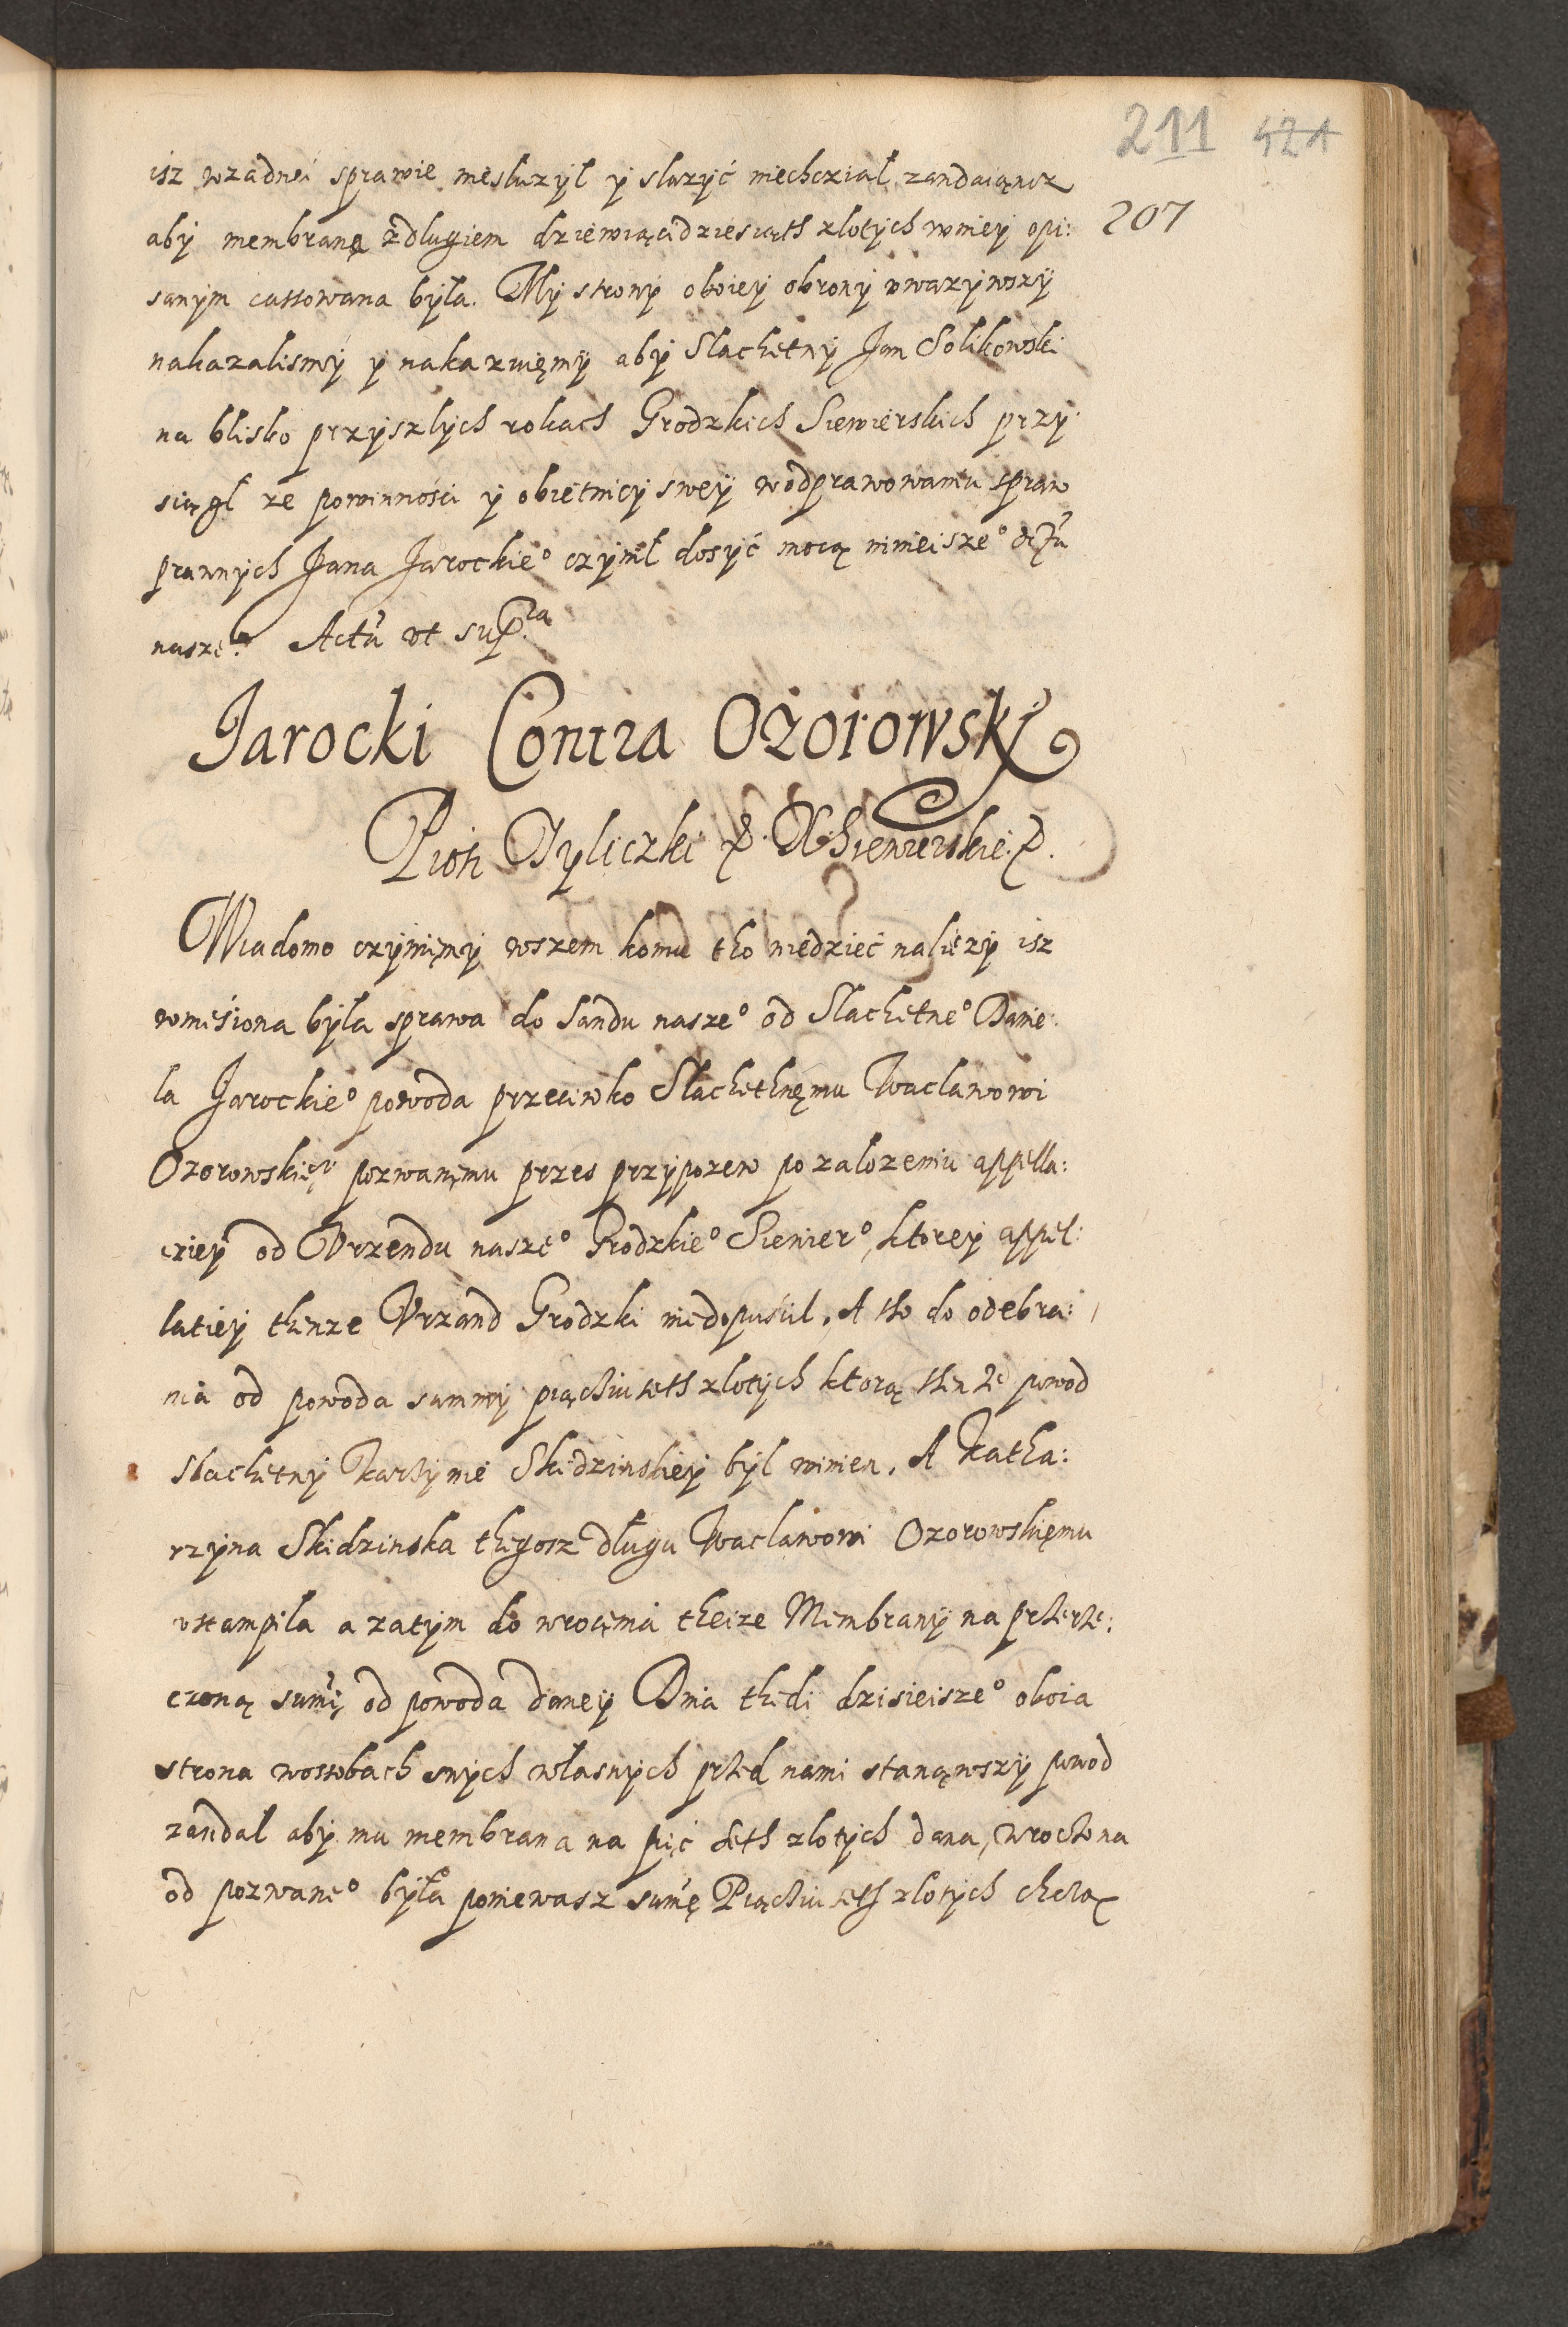 211 421
207
isz wzadnei sprawie niesluzył y sluzyć niechcział zandaiąncz
aby membranę z dlugiem dziewiącidziesiąth zlotych wniey opi:
sanym cassowana była. My strony oboiey obrony vwazywszy
nakazalismy y nakazuięmy aby Slachetny Jan Solikowski
na blisko przyszlych rokach Grodzkich Siewierskich przy
sięgl ze powinności y obietnicy swey wodprawowaniu spraw
prawnych Pana Jarockie° czynił dosyć mocą ninieisze° dectu
nasze° Actu vt supra
Jarocki Contra Ożorowski
Piotr Tyliczki B. X. Siewierskie.
Wiadomo czynięmy wszem komu tho wiedzieć należy isz
wniesiona była sprawa do Sandu nasze° od Slachetne° Danie:
la Jarockie° powoda przeciwko Slachethnęmu Waclawowi
Ozorowskięu pozwanęmu przes przypozew po zalozeniu appella:
cziey od Vrzendu nasze° Grodzkie° Siewier°, ktorey appel:
latiey thenze Vrzand Grodzki niedopuścil. A tho do odebra:
nia od powoda summy piąciuseth zlotych ktorą thenże powod
slachetny Katarzynie Skidzinskiey był winien. A Katha:
rzyna Skidzinska thegosz długu Waclawowi Ozorowskięmu
vstampila a zatym do wrocęnia theize Membrany na przerze:
czoną sumę od powoda daney Dnia thedi dzisieisze° oboia
strona wosobach swych własnych przed nami stanąwszy powod
zandał aby mu membrana na pięć seth zlotych dana, wroczona
od pozwane° była poniewasz sumę Piąciuseth zlotych chcią